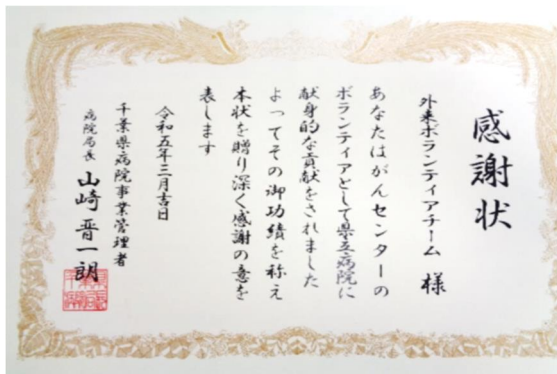 感謝状
外来ボランティアチーム 様
あなたはがんセンターの
ボランティアとして県立病院に
献身的な貢献をされました
よってその御功績を称え
本状を贈り深く感謝の意を
表します
令和五年三月吉日
千葉県病院事業管理者
病院局長 山崎晋一朗